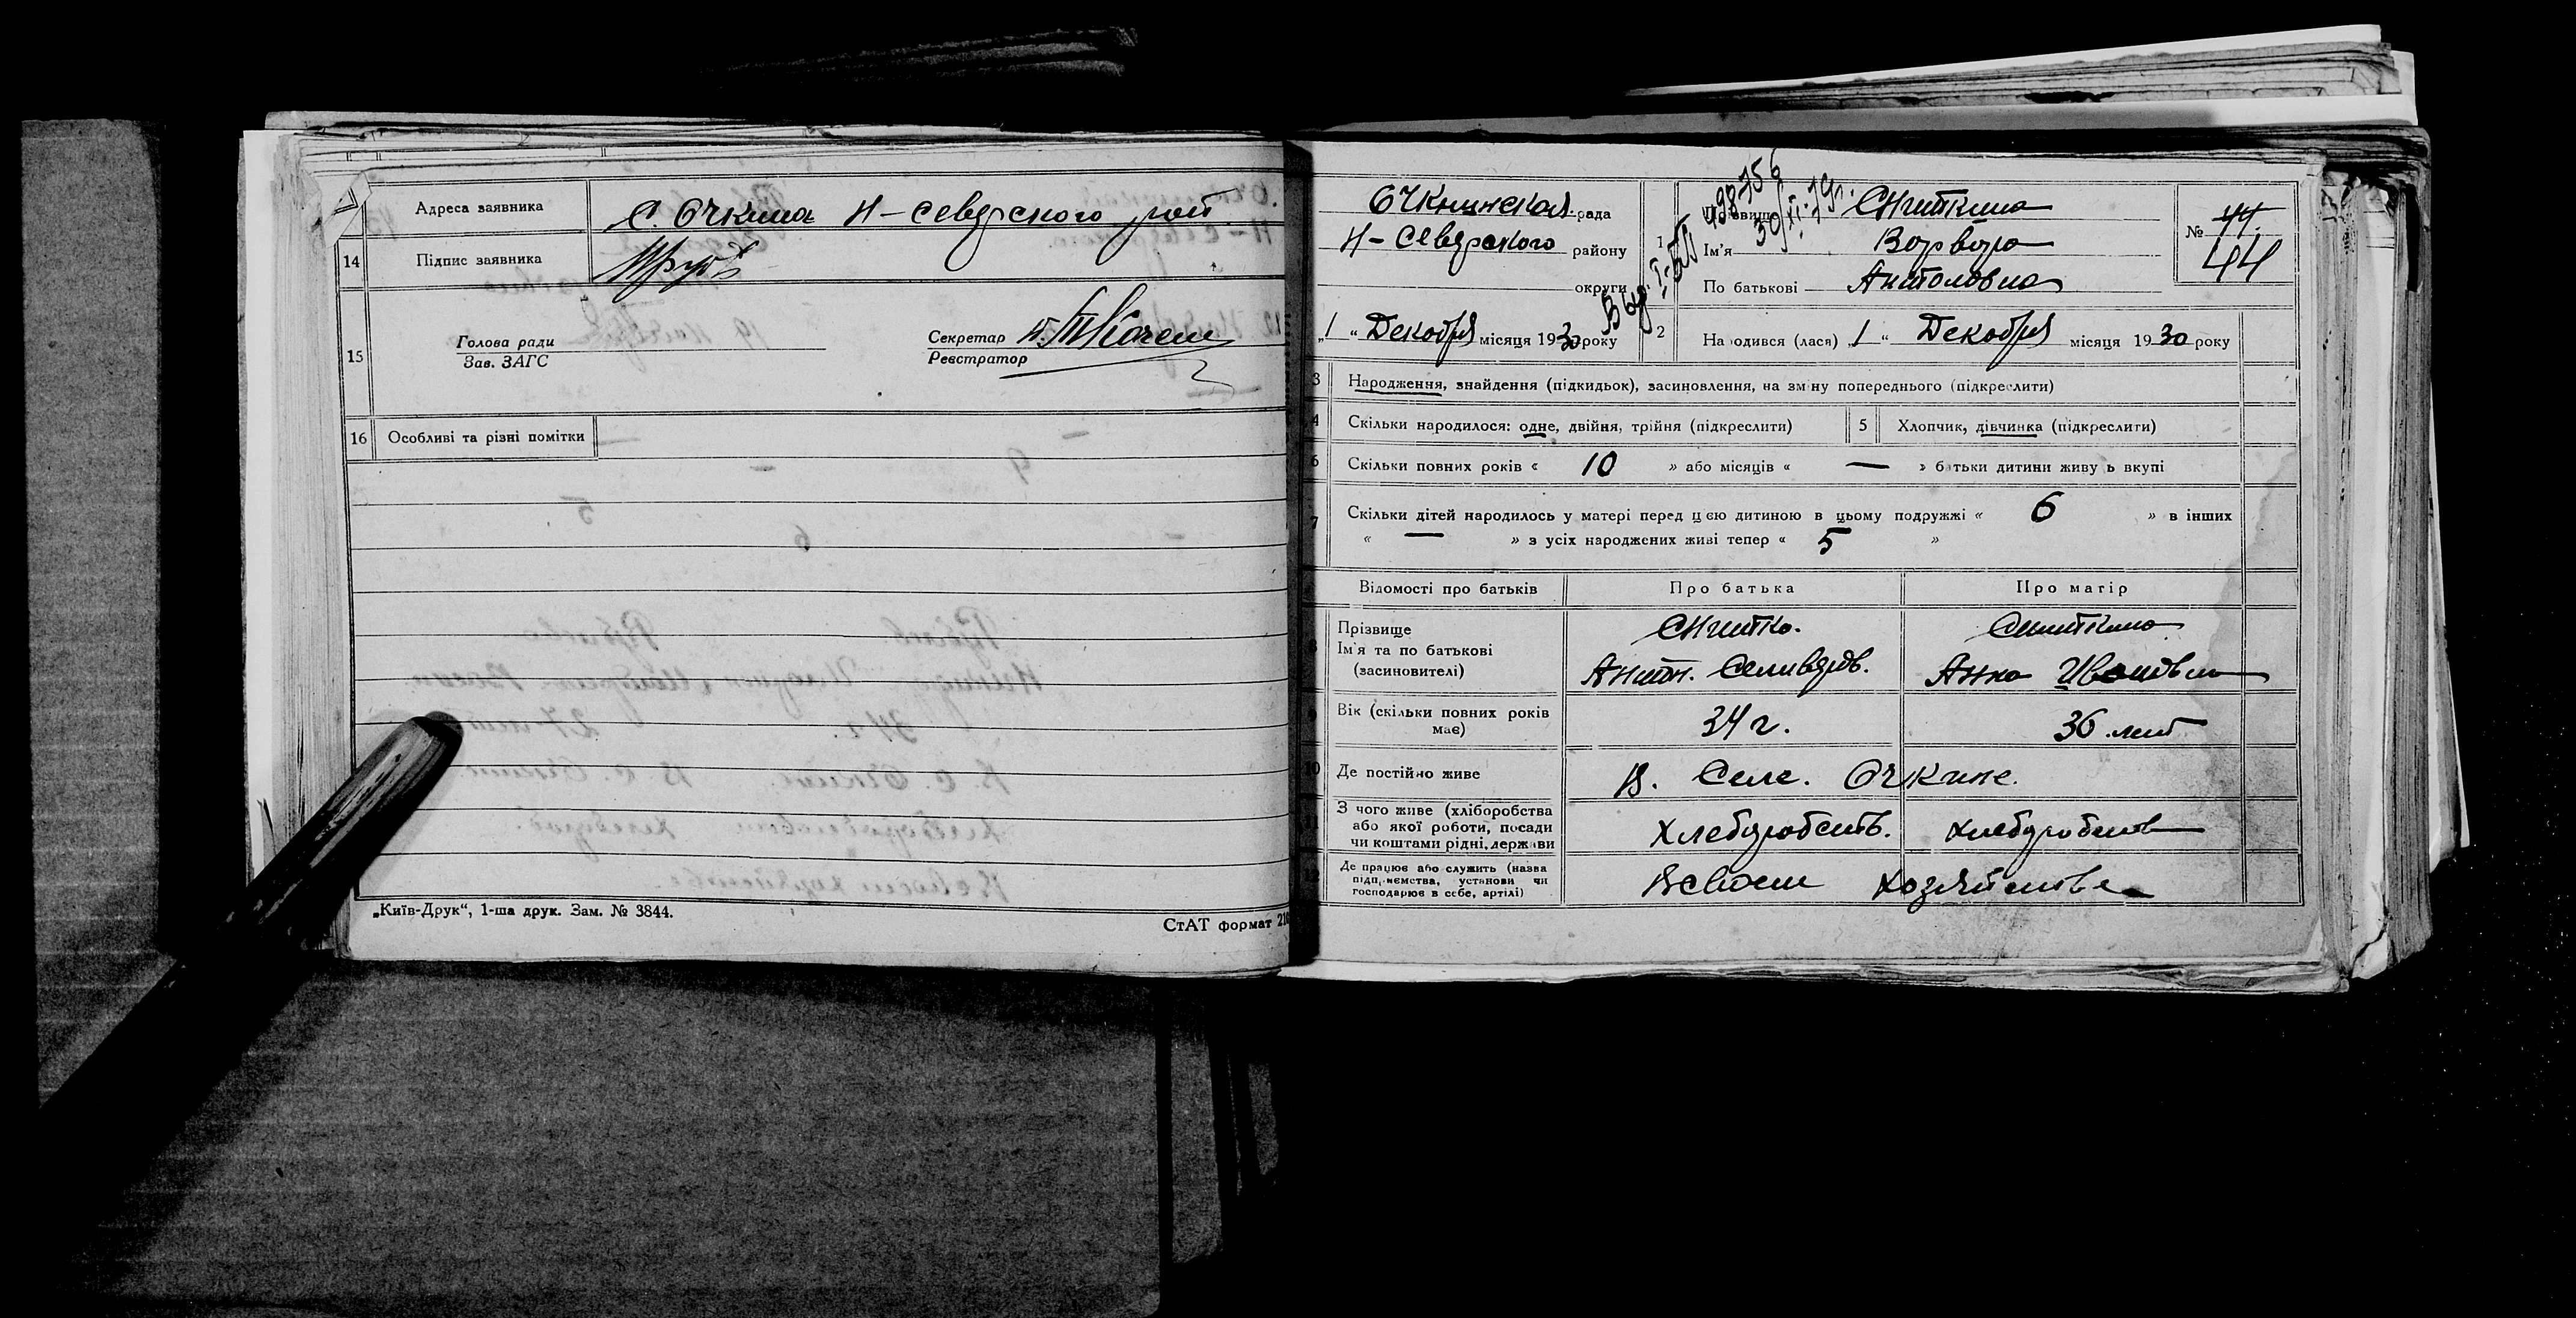 Адреса заявника С. Очкина Н-Северского рай.
14 Підпис заявника
15 Голова ради
Зав. ЗАГС
Секретар
Реєстратор
16 Особливі та різні помітки
„Київ-Друк“, 1-ша друк. Зам. № 3844.
СтАТ формат 210
Очкинская рада
Н-Северского району
округи
„1“ Декобря місяця 1930 року
Выд. I-БП 498756
30/XI-79г.
1 Прізвище Сниткина
Ім'яВорвора
По батькові Антоновна
№ 44.
44
2 Народився (лася) „1“ Декобря місяця 1930 року
3 Народження, знайдення (підкидьок), засиновлення, на зміну попереднього (підкреслити)
4 Скільки народилося: одне, двійня, трійня (підкреслити) 5 Хлопчик, дівчинка (підкреслити)
6 Скільки повних років « 10 » або місяців « — » батьки дитини живуть вкупі
7 Скільки дітей народилось у матері перед цією дитиною в цьому подружжі « 6 » в інших
« — » з усіх народжених живі тепер « 5 »
Відомості про батьків Про батька Про матір
8 Прізвище Снитко. Сниткина
Ім'я та по батькові
(засиновителі) Антон. Селивёрстов. Анна Ивановна
9 Вік (скільки повних років має) 34 г. 36 лет
10 Де постійно живе В. Селе. Очкине.
11 З чого живе (хліборобства
або якої роботи, посади
чи коштами рідні, держави Хлеборобств. хлеборобств
12 Де працює або служить (назва
підприємства, установи чи
господарює в себе, артілі) В своем хозяйстве